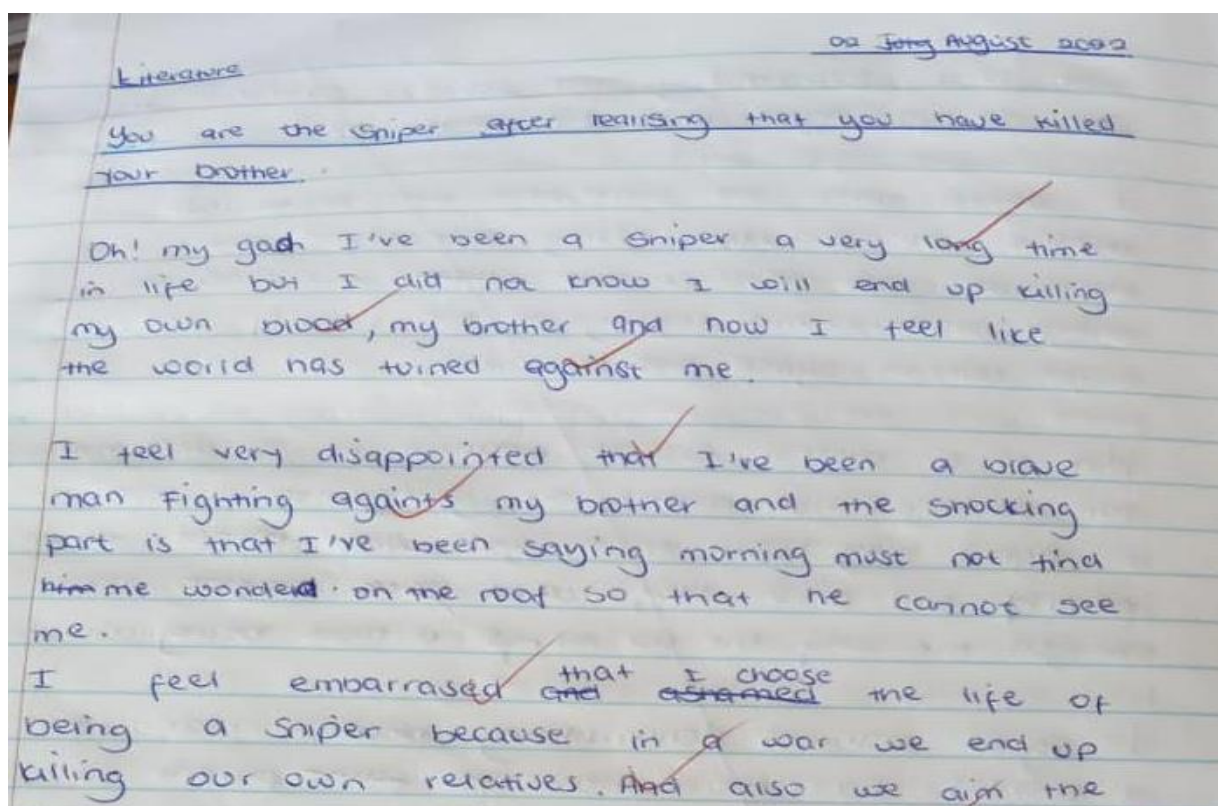 02 July August 2022
Literature
You are the sniper after realising that you have killed
your brother.
Oh! my gach I've been a sniper a very long time
in life but I did not know I will end up killing
my own blood, my brother and now I feel like
the world has turned against me.
I feel very disappointed that I've been a brave
man Fighting againts my brother and the shocking
part is that I've been saying morning must not find
him me wonded on the roof so that he cannot see
me.
I feel embarrased and ashamed that I choose the life of
being a sniper because in a war we end up
killing our own relatives. And also we aim the